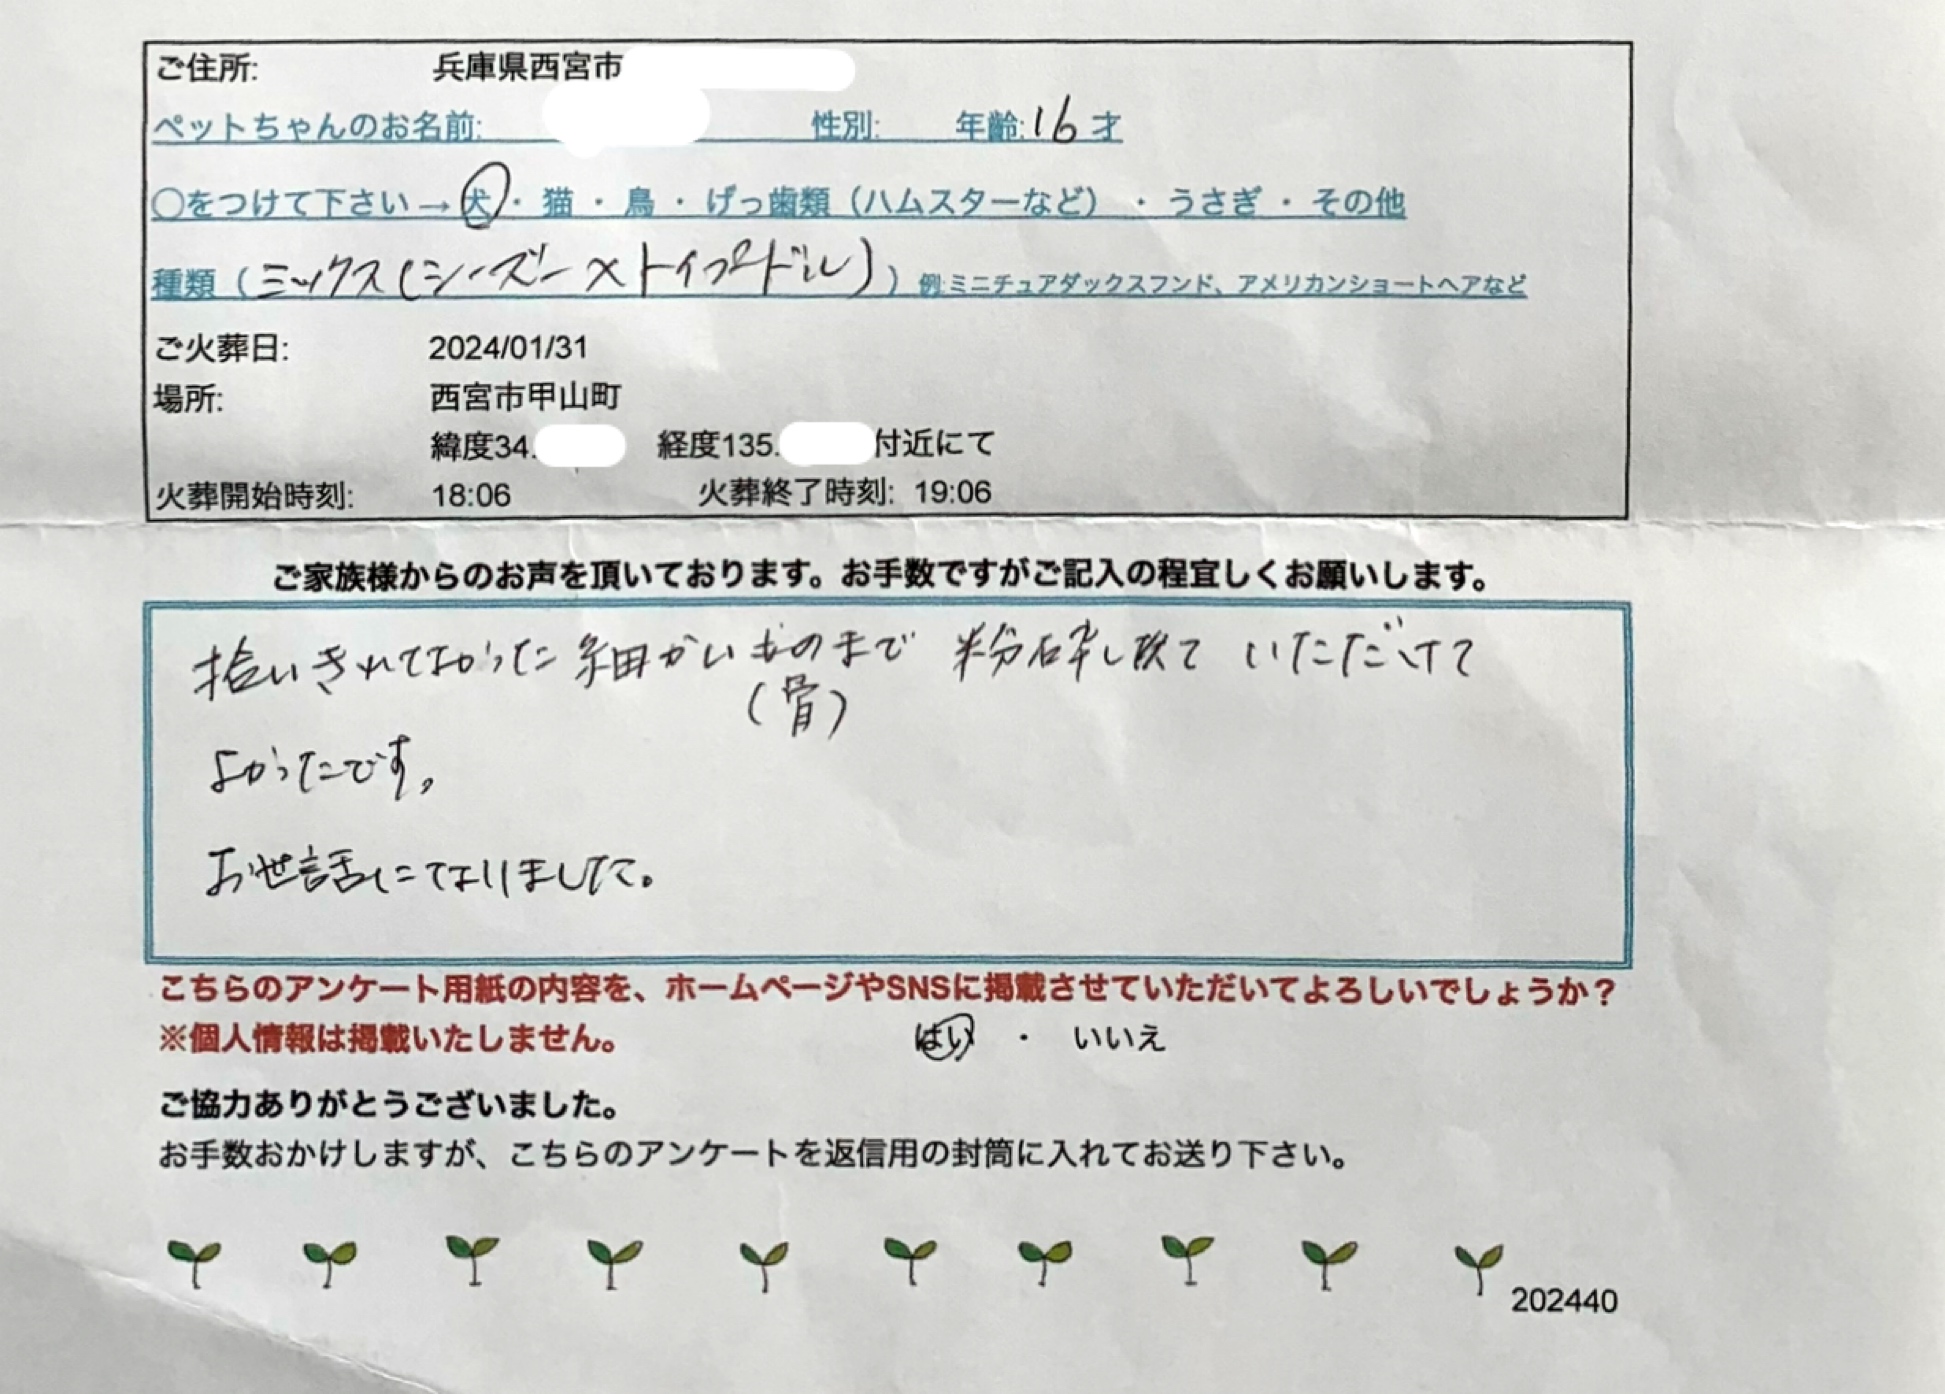 ご住所: 兵庫県西宮市
ペットちゃんのお名前: 性別: 年齢:16才
○をつけて下さい→犬・猫・鳥・げっ歯類（ハムスターなど）・うさぎ・その他
種類（ミックス(シーズー×トイプードル)）例:ミニチュアダックスフンド、アメリカンショートヘアなど
ご火葬日: 2024/01/31
場所: 西宮市甲山町
緯度34. 経度135. 付近にて
火葬開始時刻: 18:06 火葬終了時刻: 19:06
ご家族様からのお声を頂いております。お手数ですがご記入の程宜しくお願いします。
拾いきれてなかった細かいものまで 粉砕し いただけて
(骨)
よかったです。
お世話になりました。
こちらのアンケート用紙の内容を、ホームページやSNSに掲載させていただいてよろしいでしょうか？
※個人情報は掲載いたしません。 はい ・ いいえ
ご協力ありがとうございました。
お手数おかけしますが、こちらのアンケートを返信用の封筒に入れてお送り下さい。
202440